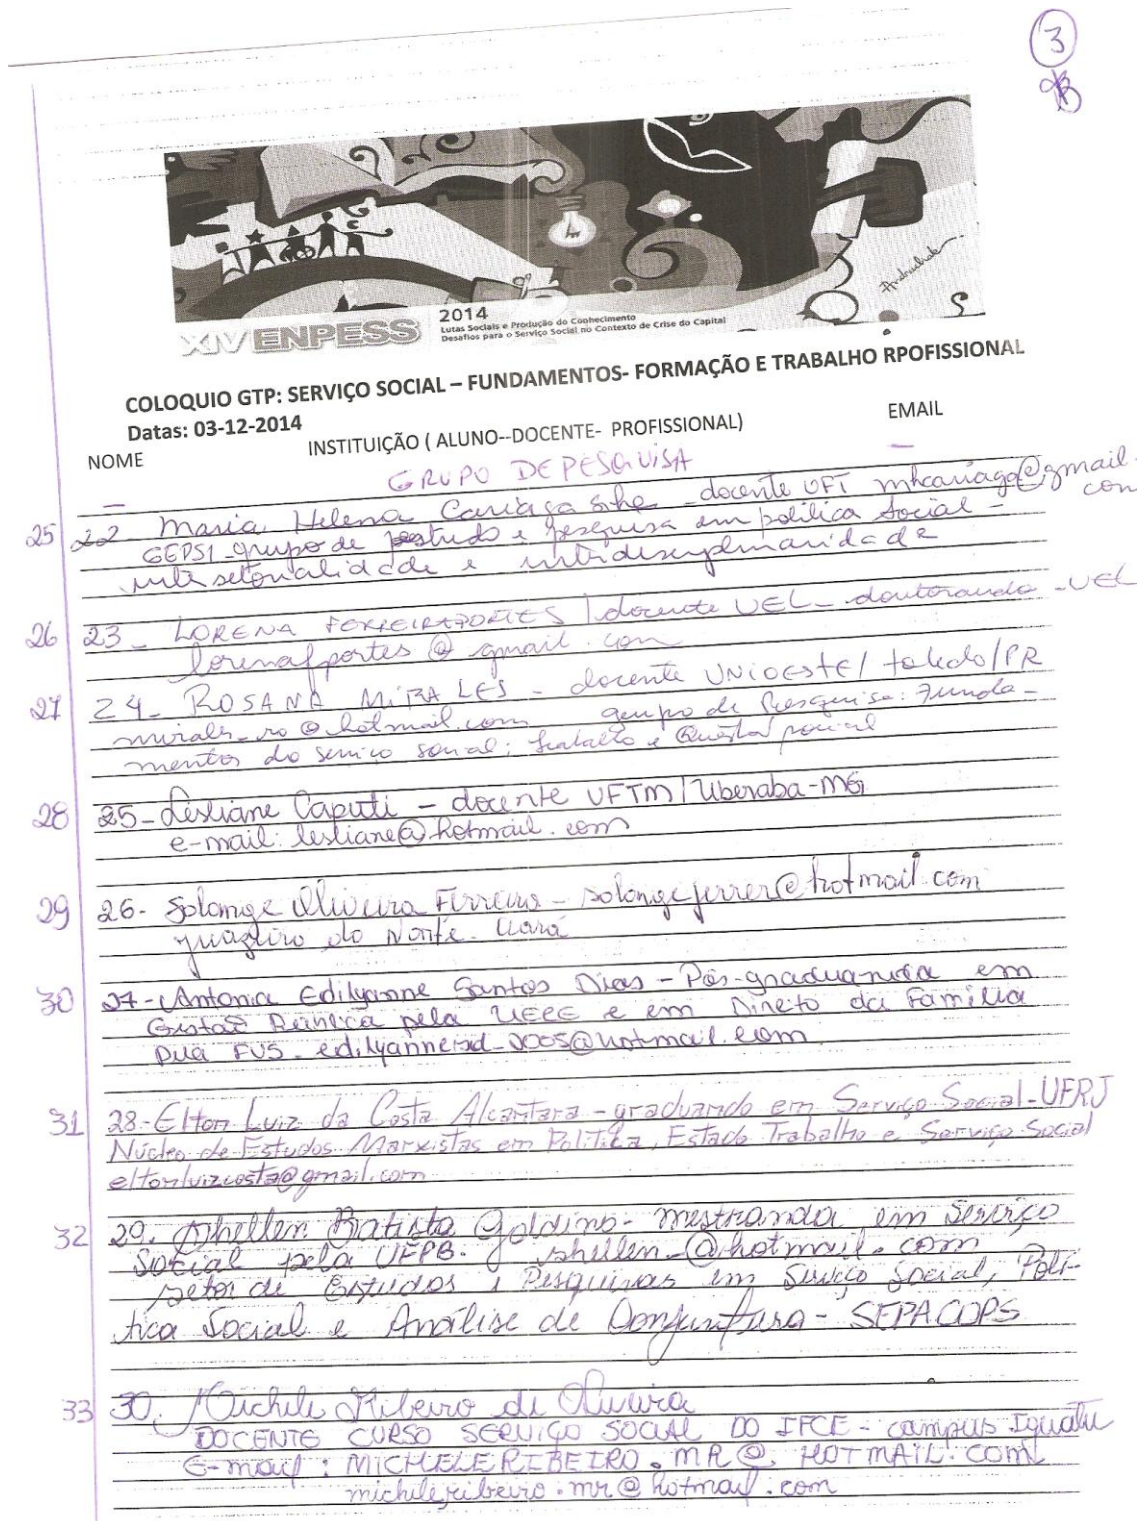 3
Andrachak
XIV ENPESS
2014
Lutas Sociais e Produção do Conhecimento
Desafios para o Serviço Social no Contexto de Crise do Capital
COLOQUIO GTP: SERVIÇO SOCIAL – FUNDAMENTOS- FORMAÇÃO E TRABALHO RPOFISSIONAL
Datas: 03-12-2014
NOME INSTITUIÇÃO ( ALUNO--DOCENTE- PROFISSIONAL) EMAIL
GRUPO DE PESQUISA
25 22- Maria Helena Cariaga - docente UFT mhcariaga@gmail.
com
GEPSI - grupo de estudo e pesquisa em política social -
intersetorialidade e interdisciplinaridade
26 23- LORENA FERREIRA PORTES | docente UEL - doutoranda - UEL
lorenafportes@gmail.com
27 24- ROSANA MIRALES - docente UNIOESTE / toledo/PR
mirales_ro@hotmail.com grupo de Pesquisa: Funda-
mentos do serviço social; trabalho e Questão social
28 25- Lesliane Caputi - docente UFTM / Uberaba-MG
e-mail: lesliane@hotmail.com
29 26- Solange Oliveira Ferreira - solangeferrer@hotmail.com
juazeiro do Norte - Ceará
30 27- Antonia Edilyanne Santos Dias - Pós-graduanda em
Gestão Pública pela UECE e em Direto da Família
pela FVS - edilyannesd_2005@hotmail.com
31 28- Elton Luiz da Costa Alcantara - graduando em Serviço Social - UFRJ
Núcleo de Estudos Marxistas em Política, Estado Trabalho e Serviço Social
eltonluizcosta@gmail.com
32 29. Shellen Batista Galdino - mestranda em Serviço
Social pela UFPB. shellen_@hotmail.com
Setor de Estudos e Pesquisas em Serviço Social, Polí-
tica Social e Análise de Conjuntura - SEPACOPS
33 30. Michele Ribeiro de Oliveira
DOCENTE CURSO SERVIÇO SOCIAL DO IFCE - campus Iguatu
E-mail: MICHELERIBEIRO.MR@HOTMAIL.COM
micheleribeiro.mr@hotmail.com